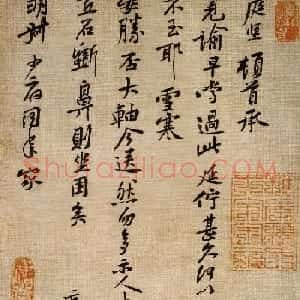 庭堅頓首承
見諭早嘗過此延佇甚久何以
不至耶 雪寒
安勝否大軸今送然勿多示人
匠石斲鼻則坐困矣
明叔少府同年家
Shufaziliao.com